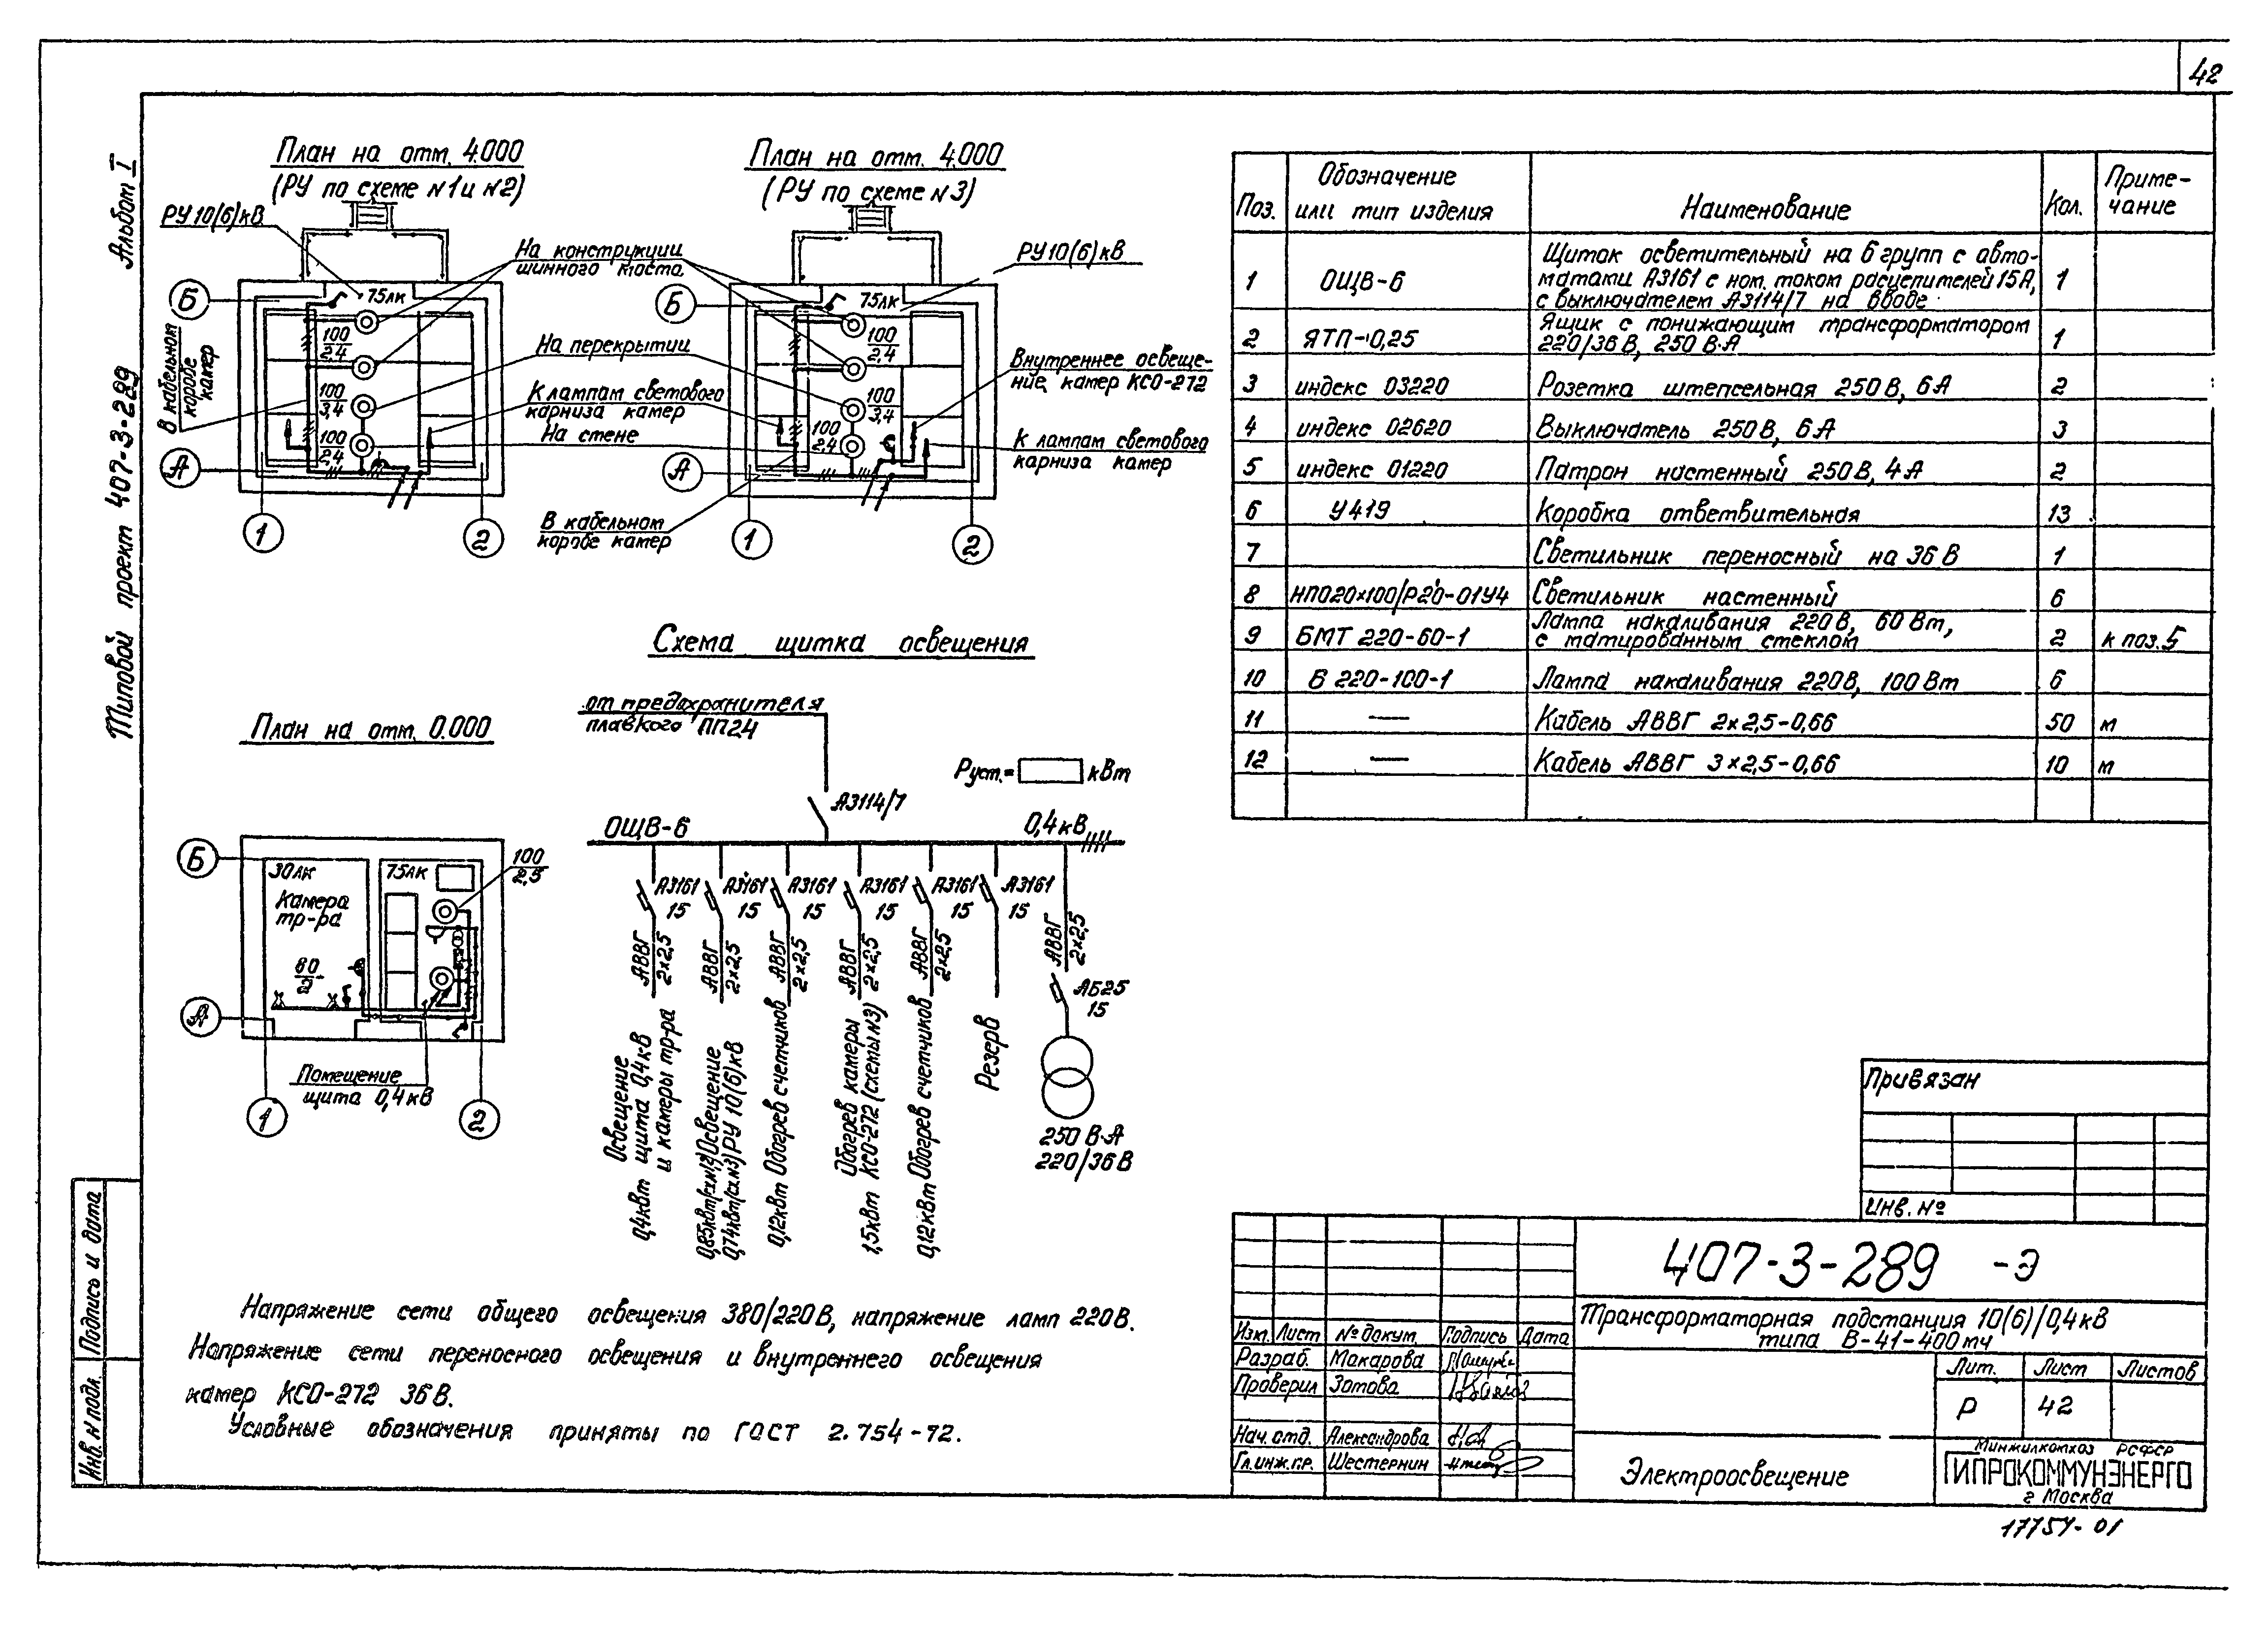 42
Альбом I
Типовой проект 407-3-289
План на отм. 4.000
(РУ по схеме №1 и №2)
РУ 10(6) кВ
Б
75лк
100
2,4
100
3,4
100
2,4
А
1
2
В кабельном
коробе
камер
На конструкции
шинного моста
На перекрытии
К лампам светового
карниза камер
На стене
План на отм. 4.000
(РУ по схеме №3)
РУ 10(6) кВ
Б
75лк
100
2,4
100
3,4
100
2,4
А
1
2
Внутреннее освеще-
ние камер КСО-272
К лампам светового
карниза камер
В кабельном
коробе камер
План на отм. 0.000
Б
30лк
Камера
тр-ра
75лк
100
2,5
А
Помещение
щита 0,4кВ
1
2
Схема щитка освещения
от предохранителя
плавкого ПП24
Руст.= кВт
А3114/7
ОЩВ-6
0,4кВ
А3161
15
А3161
15
А3161
15
А3161
15
А3161
15
А3161
15
АВВГ
2×2,5
АВВГ
2×2,5
АВВГ
2×2,5
АВВГ
2×2,5
АВВГ
2×2,5
АВВГ
2×2,5
АБ25
15
250 В·А
220/36 В
Освещение
0,4кВт щита 0,4кВ
и камеры тр-ра
0,85кВт(сх.№1,2) Освещение
0,74кВт(сх.№3) РУ 10(6)кВ
0,12кВт Обогрев счетчиков
Обогрев камеры
1,5кВт КСО-272 (схемы №3)
0,12кВт Обогрев счетчиков
Резерв
Напряжение сети общего освещения 380/220В, напряжение ламп 220В.
Напряжение сети переносного освещения и внутреннего освещения
камер КСО-272 36В.
Условные обозначения приняты по ГОСТ 2.754-72.
Поз. Обозначение или тип изделия Наименование Кол. Приме-чание
1 ОЩВ-6 Щиток осветительный на 6 групп с авто-
матами А3161 с ном. током расцепителей 15А,
с выключателем А3114/7 на вводе 1
2 ЯТП-0,25 Ящик с понижающим трансформатором
220/36 В, 250 В·А 1
3 индекс 03220 Розетка штепсельная 250 В, 6А 2
4 индекс 02620 Выключатель 250 В, 6А 3
5 индекс 01220 Патрон настенный 250 В, 4А 2
6 У419 Коробка ответвительная 13
7 Светильник переносный на 36 В 1
8 НПО20×100/Р20-01У4 Светильник настенный 6
9 БМТ 220-60-1 Лампа накаливания 220 В, 60 Вт,
с матированным стеклом 2 к поз.5
10 Б 220-100-1 Лампа накаливания 220В, 100 Вт 6
11 — Кабель АВВГ 2×2,5-0,66 50 м
12 — Кабель АВВГ 3×2,5-0,66 10 м
Привязан
Инв. №
407-3-289 -Э
Трансформаторная подстанция 10(6)/0,4кВ
типа В-41-400мч
Изм. Лист № докум. Подпись Дата
Разраб. Макарова
Проверил Зотова
Нач. отд. Александрова
Гл. инж. пр. Шестернин
Лит. Лист Листов
Р 42
Электроосвещение
Минжилкомхоз РСФСР
ГИПРОКОММУНЭНЕРГО
г Москва
17754-01
Подпись и дата
Инв. № подл.